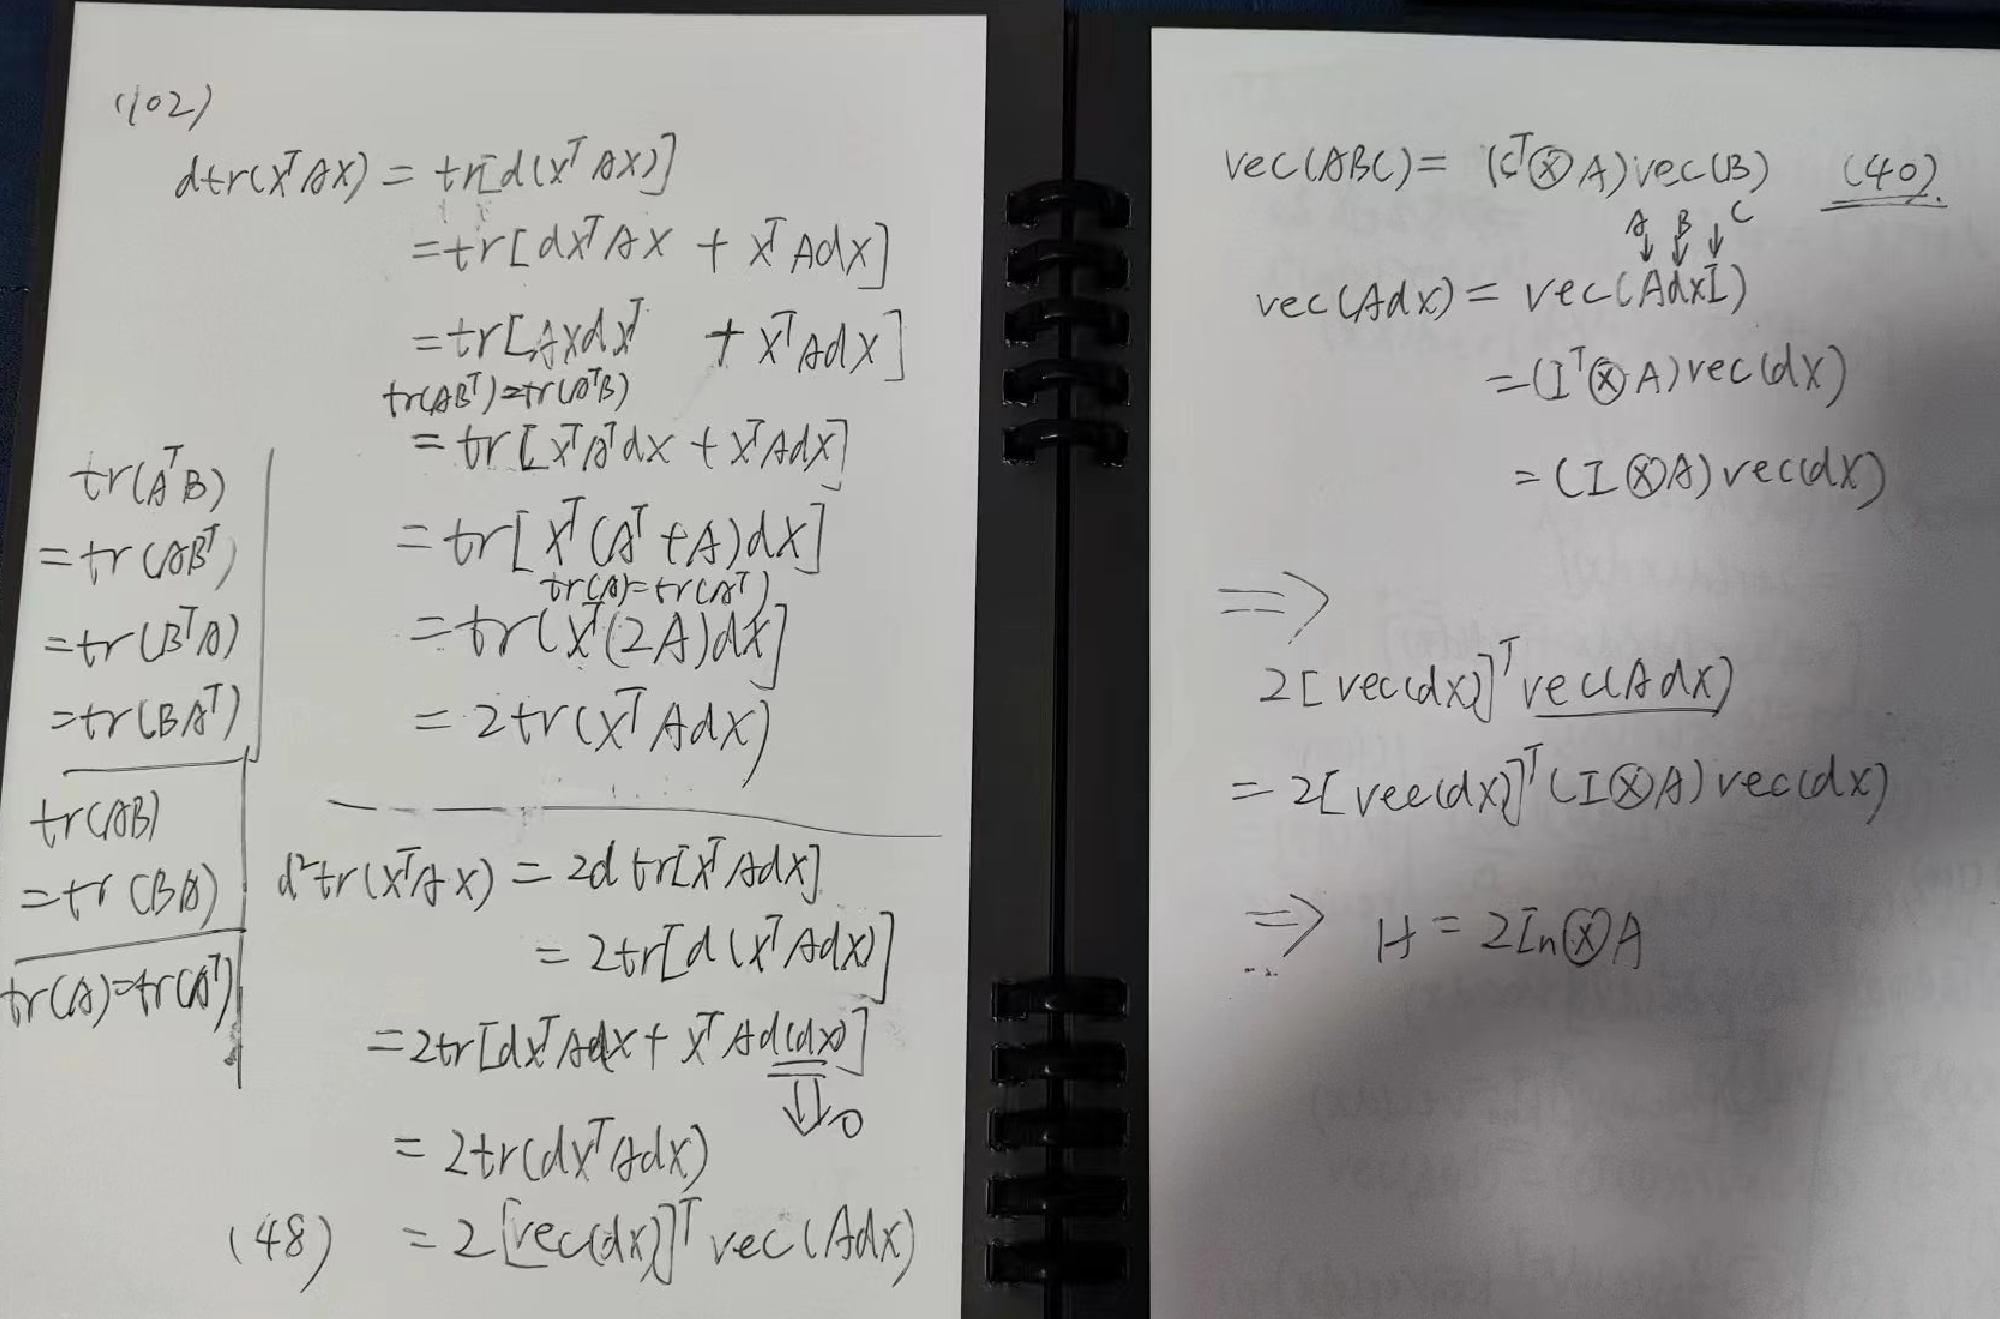 (102)
dtr(XᵀAX) = tr[d(XᵀAX)]
= tr[dXᵀAX + XᵀAdX]
= tr[AXdXᵀ + XᵀAdX]
tr(ABᵀ)=tr(AᵀB)
= tr[XᵀAᵀdX + XᵀAdX]
= tr[Xᵀ(Aᵀ+A)dX]
tr(A)=tr(Aᵀ)
= tr(Xᵀ(2A)dX]
= 2tr(XᵀAdX)
tr(AᵀB)
= tr(ABᵀ)
= tr(BᵀA)
= tr(BAᵀ)
tr(AB)
= tr(BA)
tr(A)=tr(Aᵀ)
d²tr(XᵀAX) = 2d tr[XᵀAdX]
= 2tr[d(XᵀAdX)]
= 2tr[dXᵀAdX + XᵀAd(dX)]
⇓ 0
= 2tr(dXᵀAdX)
(48) = 2[vec(dX)]ᵀ vec(AdX)
vec(ABC) = (Cᵀ⊗A)vec(B) (40).
A B C
↓ ↓ ↓
vec(AdX) = vec(AdXI)
= (Iᵀ⊗A)vec(dX)
= (I⊗A)vec(dX)
⇒
2[vec(dX)]ᵀ vec(AdX)
= 2[vec(dX)]ᵀ(I⊗A)vec(dX)
⇒ H = 2Iₙ⊗A